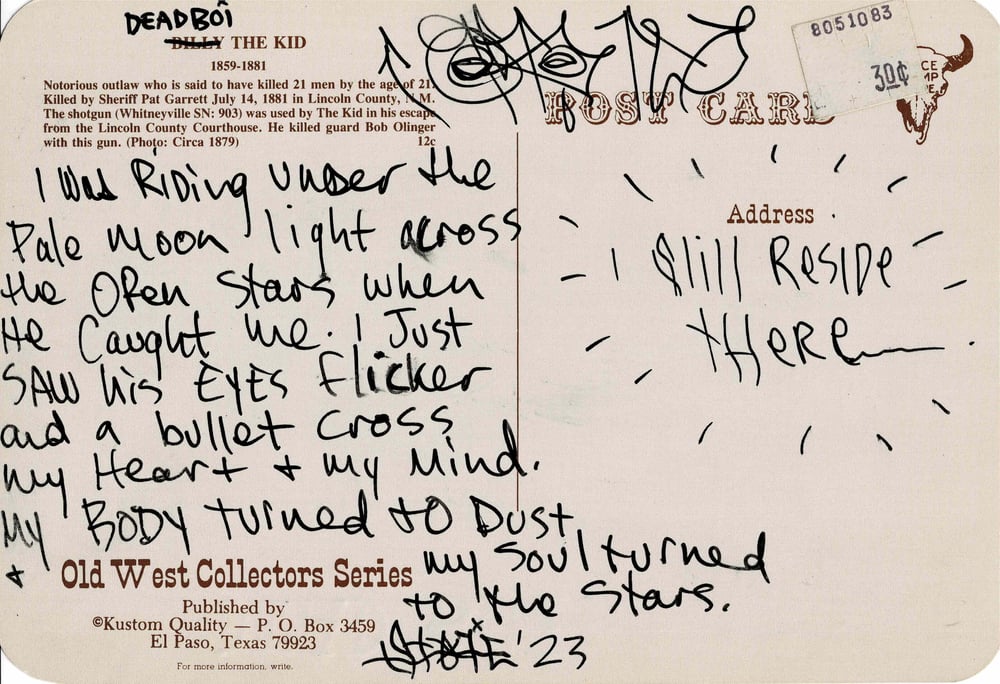 DEADBOÎ
BILLY THE KID
1859-1881
Notorious outlaw who is said to have killed 21 men by the age of 21.
Killed by Sheriff Pat Garrett July 14, 1881 in Lincoln County, N.M.
The shotgun (Whitneyville SN: 903) was used by The Kid in his escape
from the Lincoln County Courthouse. He killed guard Bob Olinger
with this gun. (Photo: Circa 1879) 12c
I Was RiDing UNDer the
Pale Moon light across
the OPen Stars when
He Caught me. I Just
SAW his EYES Flicker
and a bullet Cross
my Heart + my Mind.
MY BODY turned to Dust
+ my Soul turned
to the Stars.
'23
Old West Collectors Series
Published by
©Kustom Quality — P. O. Box 3459
El Paso, Texas 79923
For more information, write.
POST CARD
8051083
30¢
Address
I Still ResiDe
tHere